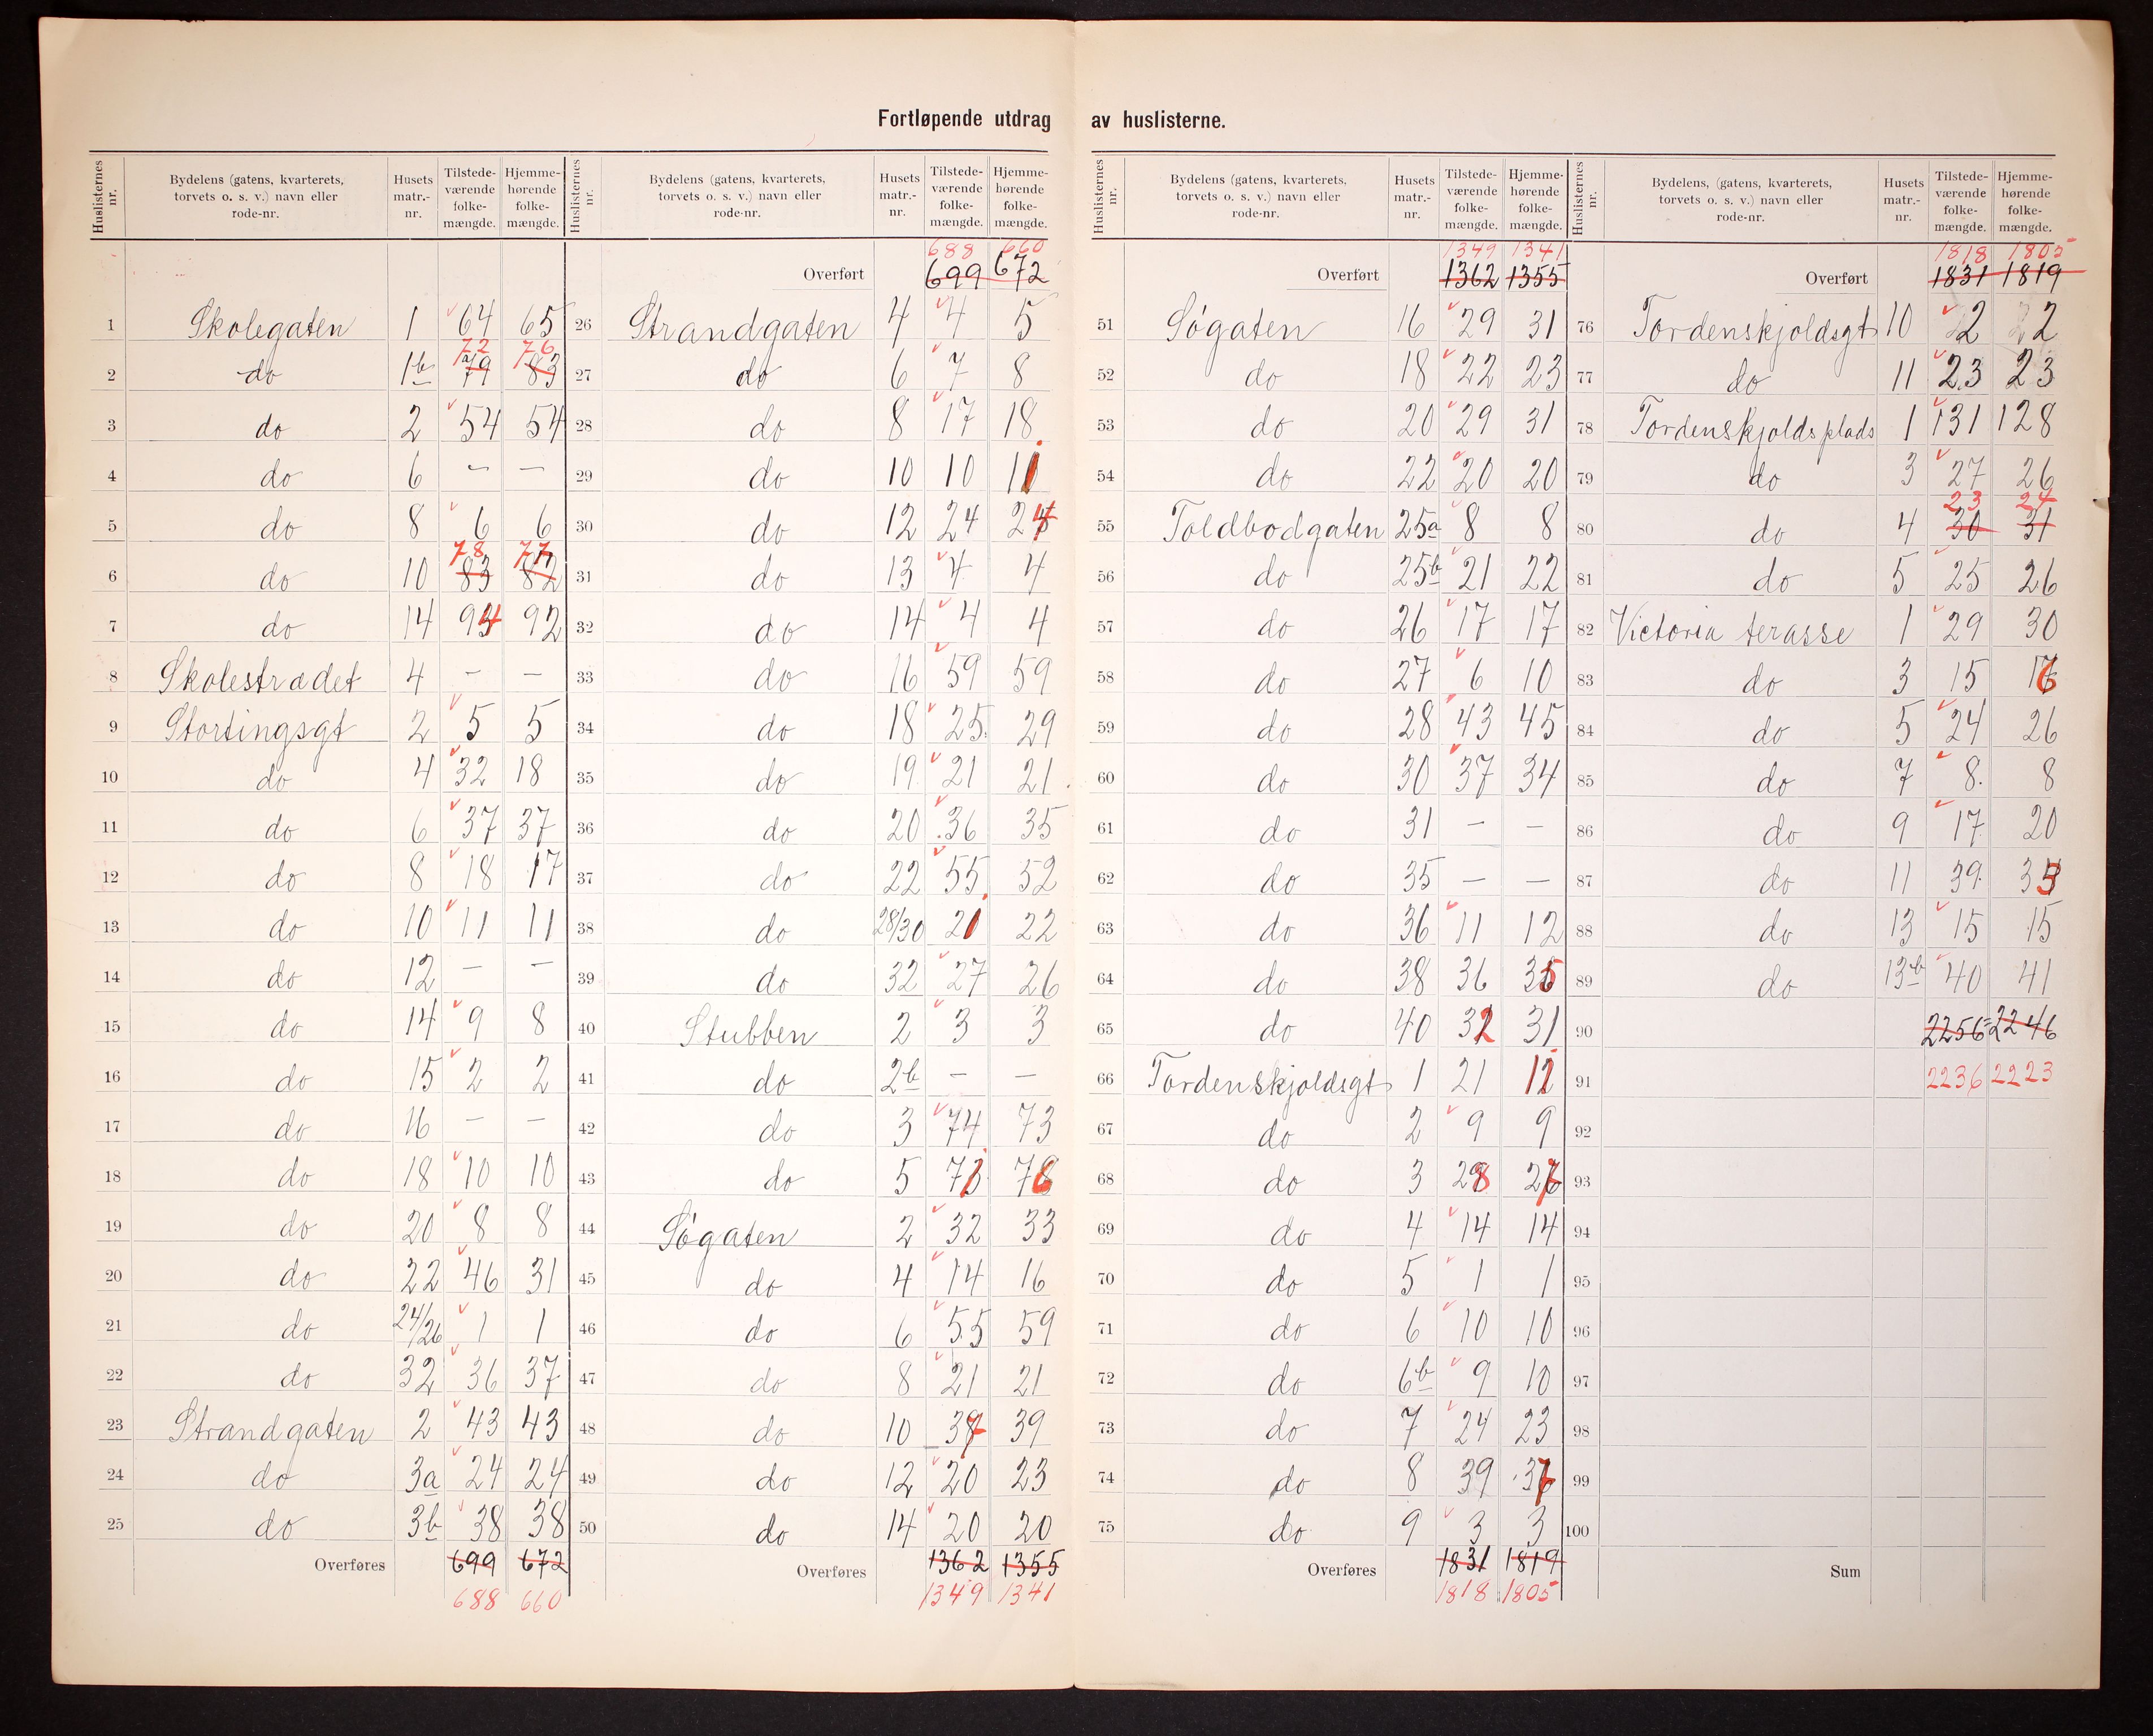 Fortløpende utdrag av huslisterne.
Huslisternes nr. | Bydelens (gatens, kvarterets, torvets o. s. v.) navn eller rode-nr. | Husets matr.-nr. | Tilstedeværende folkemængde. | Hjemmehørende folkemængde.
1 Skolegaten 1 64 65
2 do 1b 79 72 83 76
3 do 2 54 54
4 do 6 – –
5 do 8 6 6
6 do 10 83 78 82 77
7 do 14 94 92
8 Skolestrædet 4 – –
9 Stortingsgt 2 5 5
10 do 4 32 18
11 do 6 37 37
12 do 8 18 17
13 do 10 11 11
14 do 12 – –
15 do 14 9 8
16 do 15 2 2
17 do 16 – –
18 do 18 10 10
19 do 20 8 8
20 do 22 46 31
21 do 24/26 1 1
22 do 32 36 37
23 Strandgaten 2 43 43
24 do 3a 24 24
25 do 3b 38 38
Overføres 699 672
688 660
Huslisternes nr. | Bydelens (gatens, kvarterets, torvets o. s. v.) navn eller rode-nr. | Husets matr.-nr. | Tilstedeværende folkemængde. | Hjemmehørende folkemængde.
688 660
Overført 699 672
26 Strandgaten 4 4 5
27 do 6 7 8
28 do 8 17 18
29 do 10 10 11
30 do 12 24 24
31 do 13 4 4
32 do 14 4 4
33 do 16 59 59
34 do 18 25 29
35 do 19 21 21
36 do 20 36 35
37 do 22 55 52
38 do 28/30 21 22
39 do 32 27 26
40 Stubben 2 3 3
41 do 2b – –
42 do 3 74 73
43 do 5 73 76
44 Søgaten 2 32 33
45 do 4 14 16
46 do 6 55 59
47 do 8 21 21
48 do 10 37 39
49 do 12 20 23
50 do 14 20 20
Overføres 1362 1355
1349 1341
Huslisternes nr. | Bydelens (gatens, kvarterets, torvets o. s. v.) navn eller rode-nr. | Husets matr.-nr. | Tilstedeværende folkemængde. | Hjemmehørende folkemængde.
1349 1341
Overført 1362 1355
51 Søgaten 16 29 31
52 do 18 22 23
53 do 20 29 31
54 do 22 20 20
55 Toldbodgaten 25a 8 8
56 do 25b 21 22
57 do 26 17 17
58 do 27 6 10
59 do 28 43 45
60 do 30 37 34
61 do 31 – –
62 do 35 – –
63 do 36 11 12
64 do 38 36 35
65 do 40 32 31
66 Tordenskjoldsgt 1 21 12
67 do 2 9 9
68 do 3 28 27
69 do 4 14 14
70 do 5 1 1
71 do 6 10 10
72 do 6b 9 10
73 do 7 24 23
74 do 8 39 37
75 do 9 3 3
Overføres 1831 1819
1818 1805
Huslisternes nr. | Bydelens, (gatens, kvarterets, torvets o. s. v.) navn eller rode-nr. | Husets matr.-nr. | Tilstedeværende folkemængde. | Hjemmehørende folkemængde.
1818 1805
Overført 1831 1819
76 Tordenskjoldsgt 10 2 2
77 do 11 23 23
78 Tordenskjoldsplads 1 131 128
79 do 3 27 26
80 do 4 30 23 31 24
81 do 5 25 26
82 Victoria terasse 1 29 30
83 do 3 15 16
84 do 5 24 26
85 do 7 8 8
86 do 9 17 20
87 do 11 39 33
88 do 13 15 15
89 do 13b 40 41
90 2256 2246
91 2236 2223
92
93
94
95
96
97
98
99
100
Sum